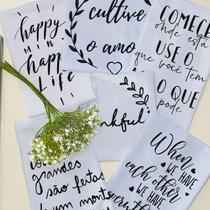 happy
happy
Life
cultive
o amor
COMECE
onde está
USE O
que você tem
O QUE
pode
grandes
são feitas
When
WE HAVE
each other
WE HAVE